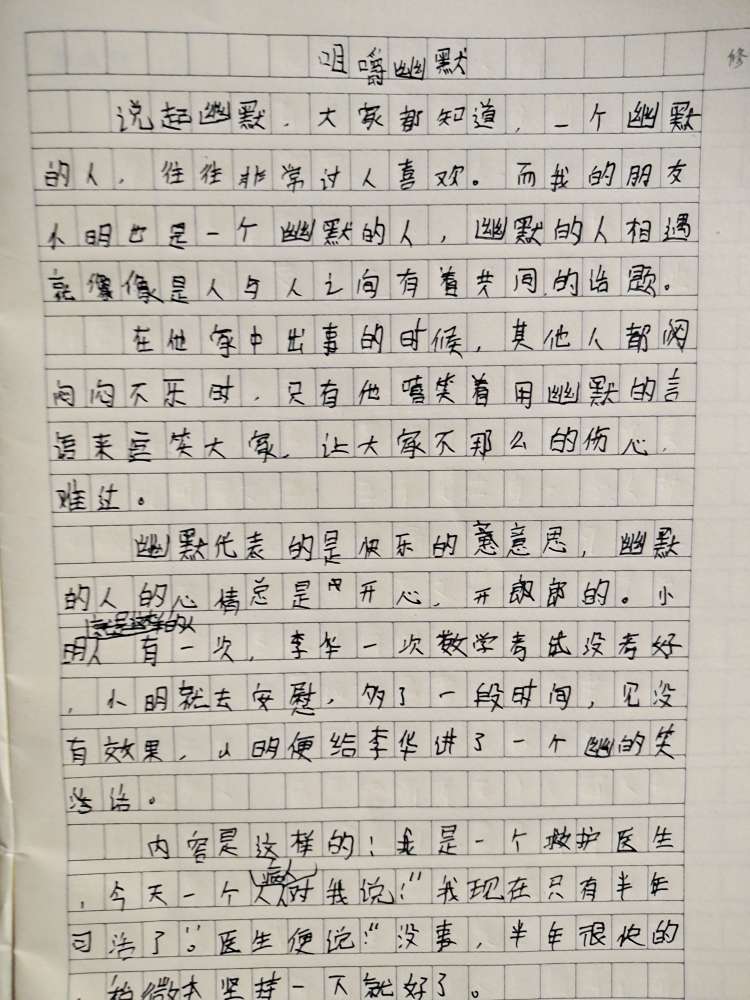 修
咀嚼幽默
说起幽默，大家都知道，一个幽默
的人，往往非常讨人喜欢。而我的朋友
小明也是一个幽默的人，幽默的人相遇
就像像是人与人之间有着共同的话题。
在他家中出事的时候，其他人都闷
闷闷不乐时，只有他嘻笑着用幽默的言
语来逗笑大家，让大家不那么的伤心，
难过。
幽默代表的是快乐的意思，幽默
的人的心情总是开心，开朗的。小
就是这样的人
明 有一次，李华一次数学考试没考好
，小明就去安慰，够了一段时间，见没
有效果，小明便给李华讲了一个幽的笑
话。
内容是这样的：我是一个救护医生
病人
，今天一个人对我说：“我现在只有半年
可活了”。医生便说：“没事，半年很快的
，稍微 坚持一下就好了。